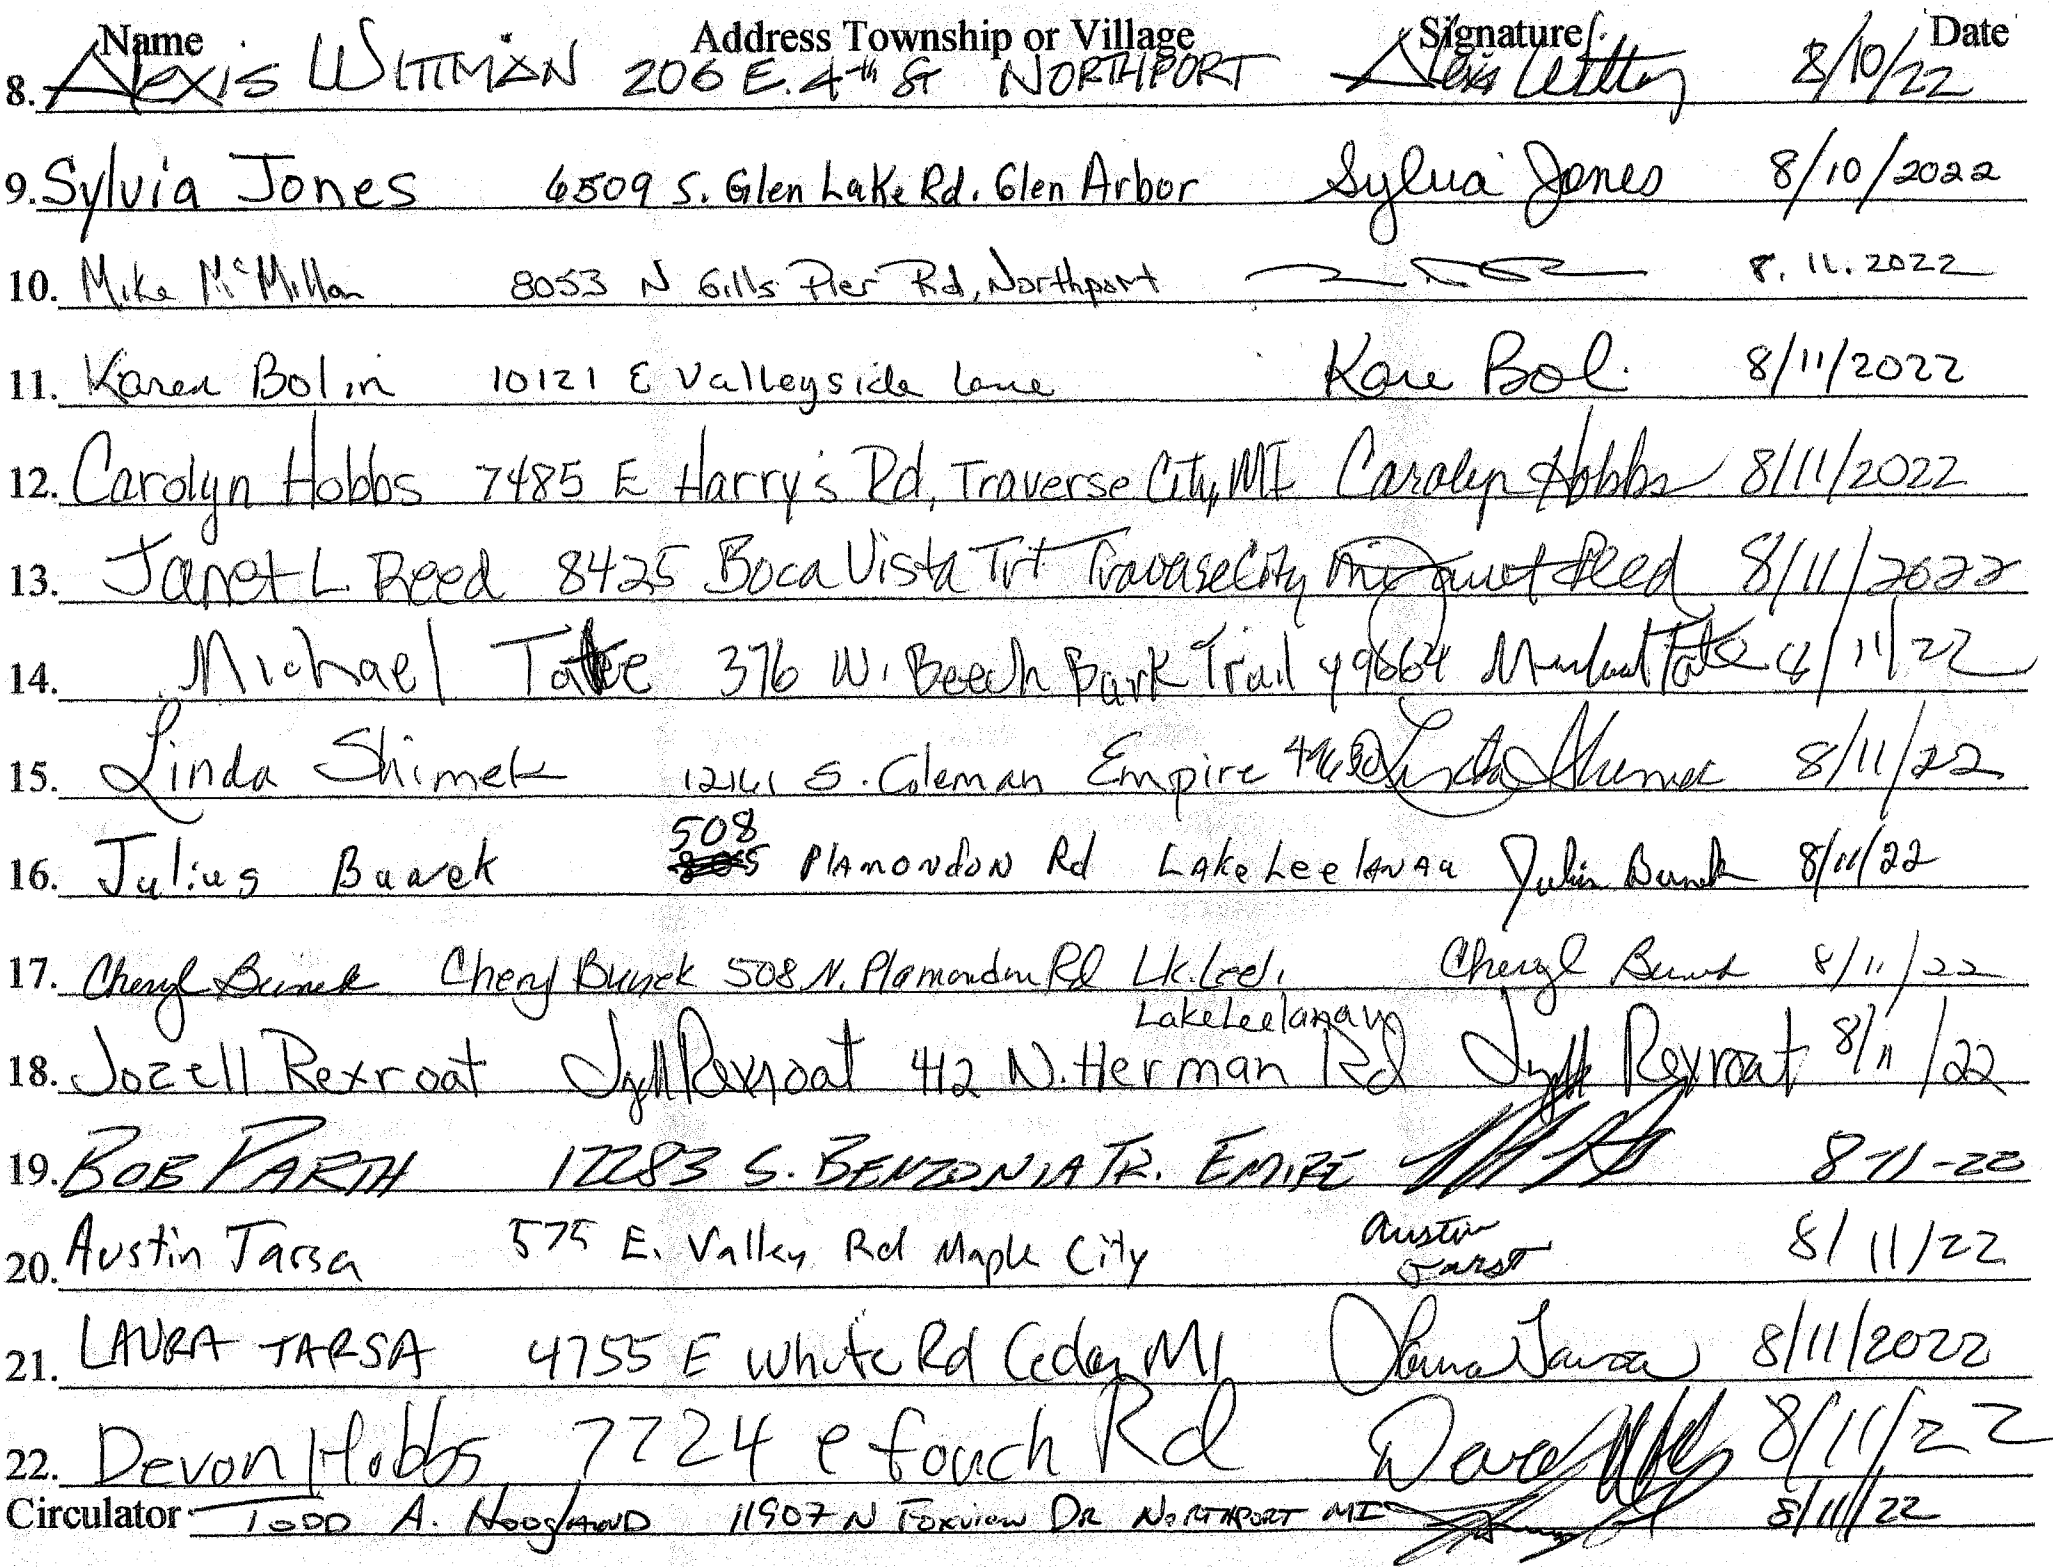 Name Address Township or Village Signature Date
8. Alexis Wittman 206 E. 4th St Northport Alexis 8/10/22
9. Sylvia Jones 6509 S. Glen Lake Rd. Glen Arbor Sylvia Jones 8/10/2022
10. Mike McMillan 8053 N Gills Pier Rd, Northport 8.11.2022
11. Karen Bolin 10121 E Valleyside Lane 8/11/2022
12. Carolyn Hobbs 7485 E Harry's Rd, Traverse City, MI Carolyn Hobbs 8/11/2022
13. Janet L. Reed 8425 Boca Vista Trt Traverse City Janet Reed 8/11/2022
14. Michael Tate 376 W. Beech Bark Trail 49664 Michael Tate 8/11/22
15. Linda Shimek 12161 S. Coleman Empire Linda Shimek 8/11/22
508
16. Julius Bunek Plamondon Rd Lake Leelanau Julius Bunek 8/11/22
17. Cheryl Bunek Cheryl Bunek 508 N. Plamondon Rd Lk. Leel. Cheryl Bunek 8/11/22
Lake Leelanau
18. Jozell Rexroat Jozell Rexroat 412 N. Herman Rd Jozell Rexroat 8/11/22
19. BOB PARTH 12283 S. BENZONIA TR. EMIRE 8-11-20
20. Austin Tarsa 575 E. Valley Rd Maple City Austin 8/11/22
21. LAURA TARSA 4755 E White Rd Cedar, MI Laura Tarsa 8/11/2022
22. Devon Hobbs 7724 e fouch Rd 8/11/22
Circulator Todd A. Hoogland 11907 N Foxview Dr Northport MI 8/11/22